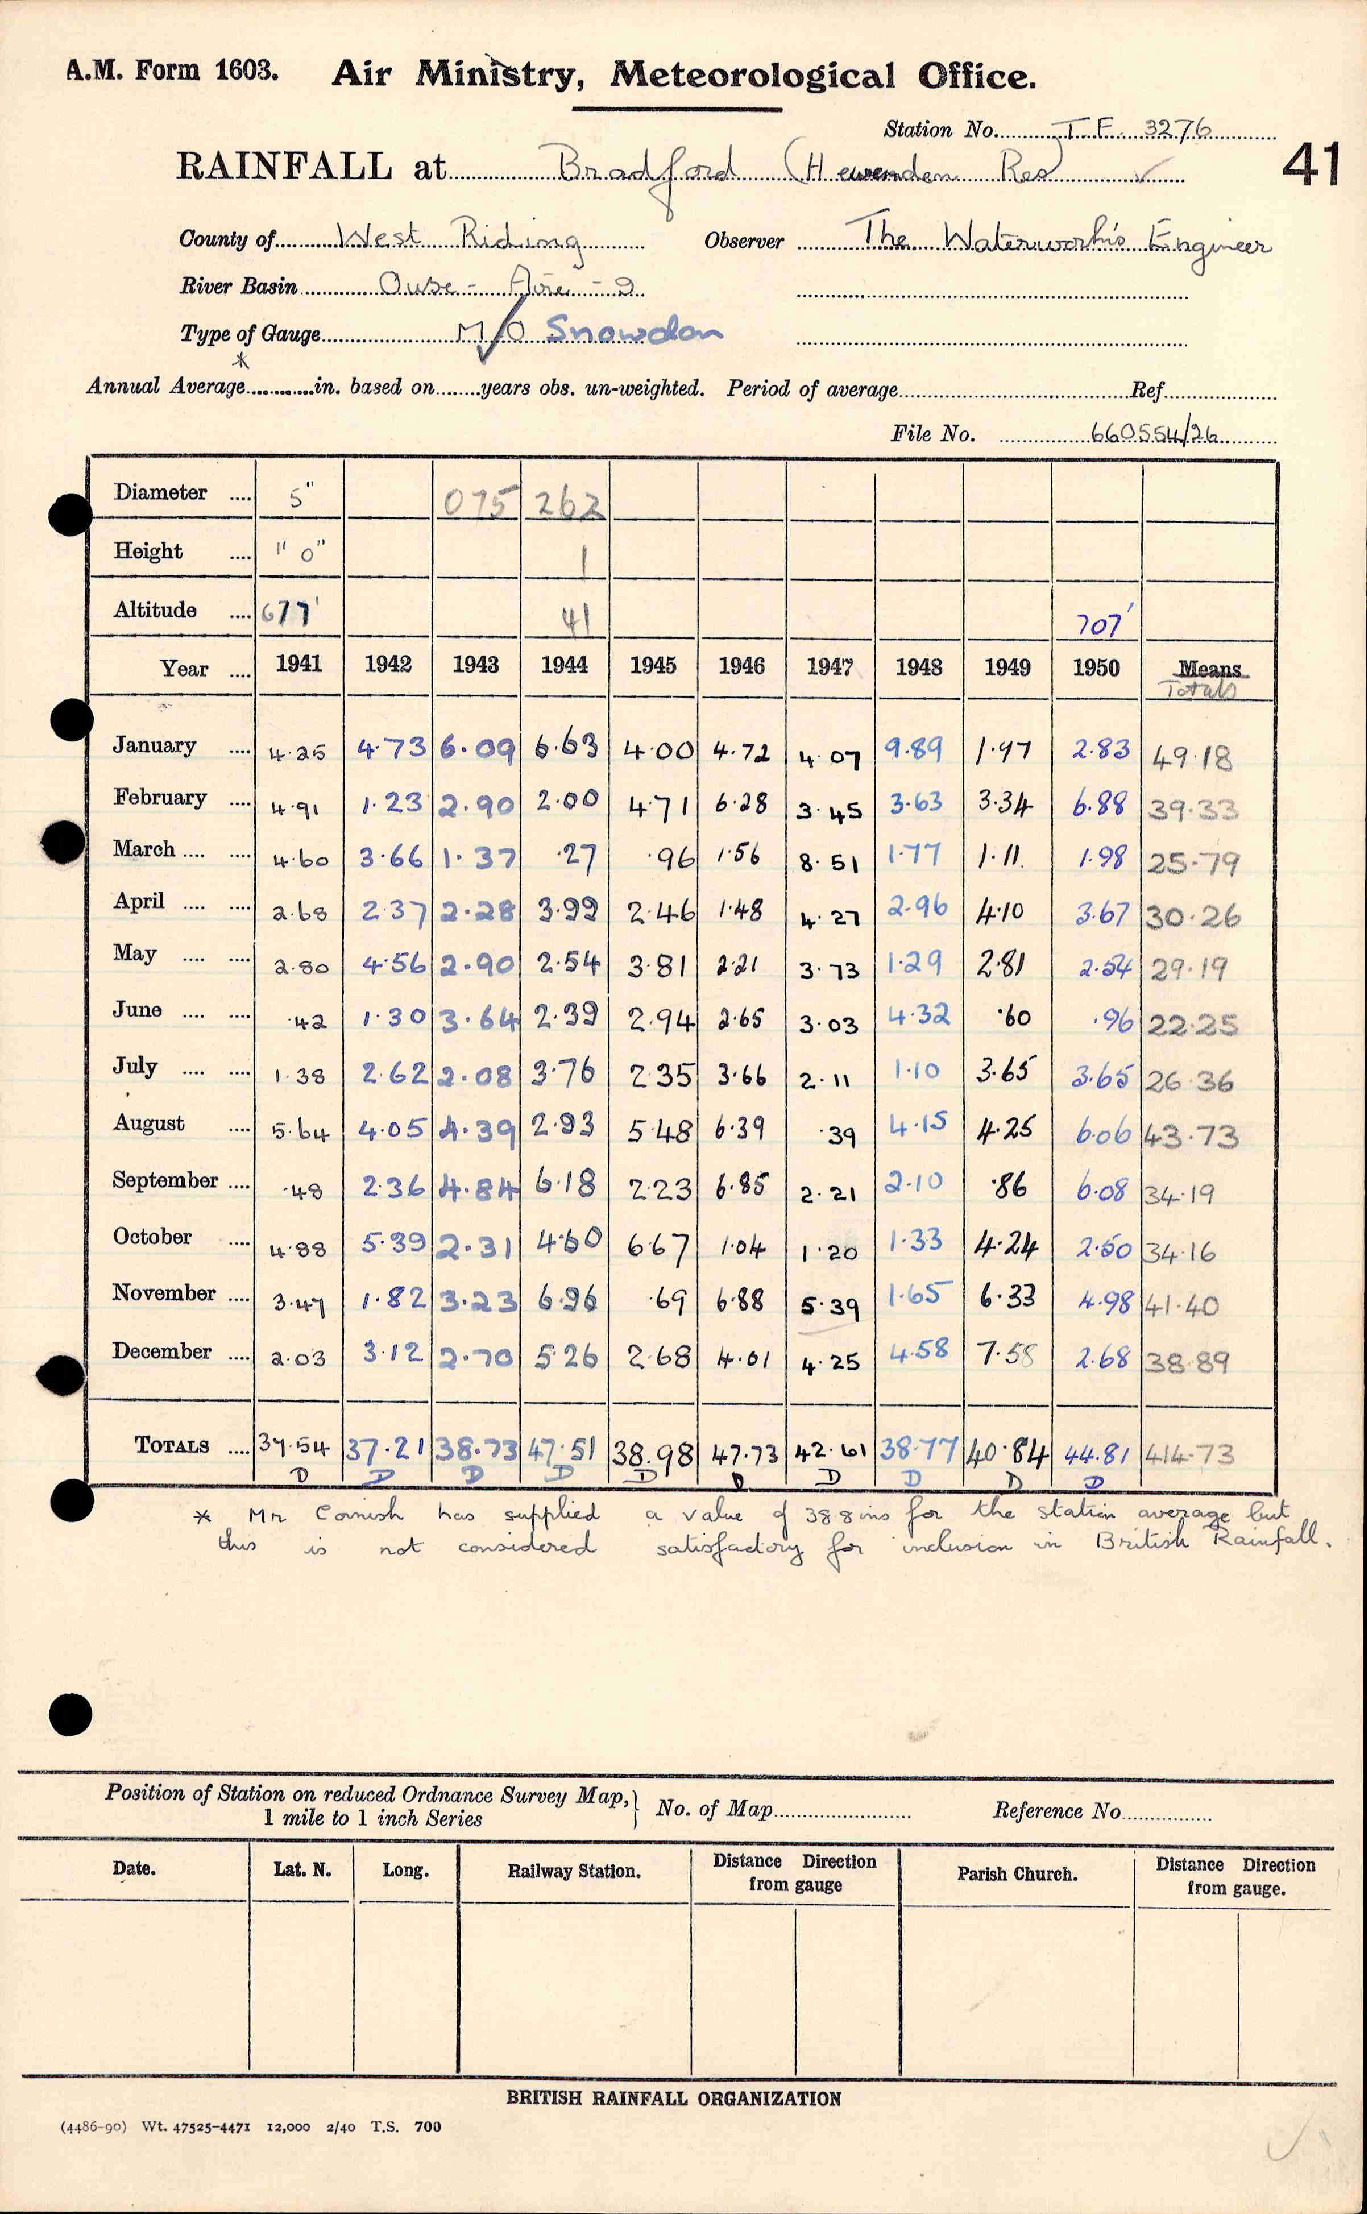 A.M. Form 1603. Air Ministry, Meteorological Office.
Station No. T.F. 3276
41
RAINFALL at Bradford (Hewenden Res)
County of West Riding Observer The Waterworks Engineer
River Basin Ouse - Aire - 9
Type of Gauge M/O Snowdon
*
Annual Average in. based on years obs. un-weighted. Period of average Ref
File No. 660554/26
Diameter .... 5" 075 262
Height .... 1' 0" 1
Altitude .... 677' 41 707'
Year .... 1941 1942 1943 1944 1945 1946 1947 1948 1949 1950 Means
Totals
January .... 4.25 4.73 6.09 6.63 4.00 4.72 4.07 9.89 1.97 2.83 49.18
February .... 4.91 1.23 2.90 2.00 4.71 6.28 3.45 3.63 3.34 6.88 39.33
March .... .... 4.60 3.66 1.37 .27 .96 1.56 8.51 1.77 1.11 1.98 25.79
April .... .... 2.68 2.37 2.28 3.99 2.46 1.48 4.27 2.96 4.10 3.67 30.26
May .... .... 2.80 4.56 2.90 2.54 3.81 2.21 3.73 1.29 2.81 2.54 29.19
June .... .... .42 1.30 3.64 2.39 2.94 2.65 3.03 4.32 .60 .96 22.25
July .... .... 1.38 2.62 2.08 3.76 2.35 3.66 2.11 1.10 3.65 3.65 26.36
August .... 5.64 4.05 4.39 2.93 5.48 6.39 .39 4.15 4.25 6.06 43.73
September .... .48 2.36 4.84 6.18 2.23 6.85 2.21 2.10 .86 6.08 34.19
October .... 4.88 5.39 2.31 4.60 6.67 1.04 1.20 1.33 4.24 2.50 34.16
November .... 3.47 1.82 3.23 6.96 .69 6.88 5.39 1.65 6.33 4.98 41.40
December .... 2.03 3.12 2.70 5.26 2.68 4.01 4.25 4.58 7.58 2.68 38.89
TOTALS .... 37.54 37.21 38.73 47.51 38.98 47.73 42.61 38.77 40.84 44.81 414.73
D D D D D D D D D D
* Mr Cornish has supplied a value of 38.8 ins for the station average but
this is not considered satisfactory for inclusion in British Rainfall.
Position of Station on reduced Ordnance Survey Map, No. of Map Reference No
1 mile to 1 inch Series
Date. Lat. N. Long. Railway Station. Distance Direction from gauge Parish Church. Distance Direction from gauge.
BRITISH RAINFALL ORGANIZATION
(4486-90) Wt. 47525-4471 12,000 2/40 T.S. 700